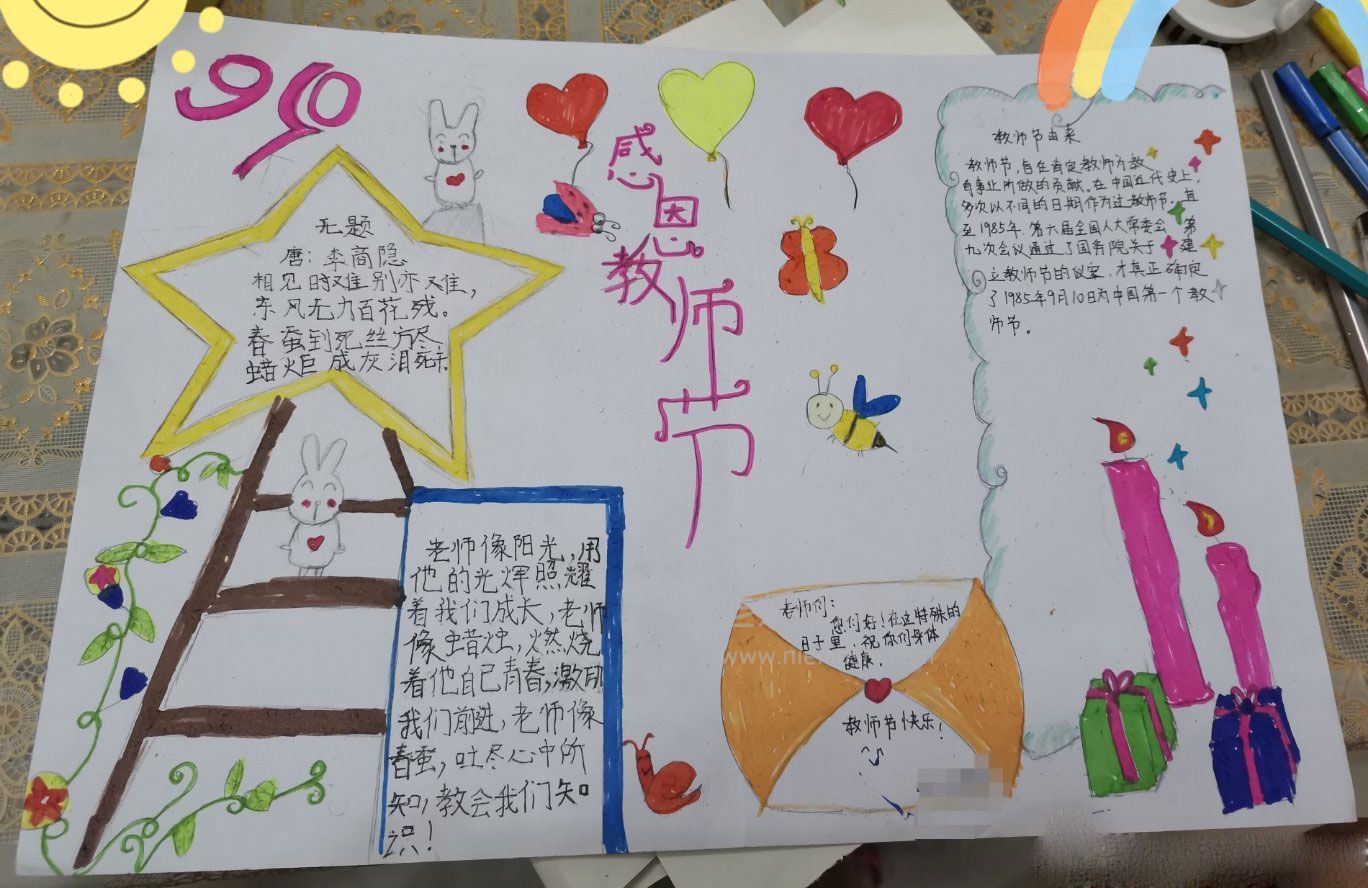 9.10
感恩教师节
无题
唐：李商隐
相见时难别亦难，
东风无力百花残。
春蚕到死丝方尽，
蜡炬成灰泪
老师像阳光，用
他的光辉照耀
着我们成长，老师
像蜡烛，燃烧
着他自己青春，激励
我们前进，老师像
春蚕，吐尽心中所
知，教会我们知
识！
教师节由来
教师节，旨在肯定教师为教
育事业所做的贡献。在中国近代史上，
多次以不同的日期作为过教师节。直
至1985年，第六届全国人大常委会 第
九次会议通过了国务院关于 建
立教师节的议案，才真正确定
了1985年9月10日为中国第一个教
师节。
老师们：
您们好！在这特殊的
日子里，祝你们身体
健康。
教师节快乐！